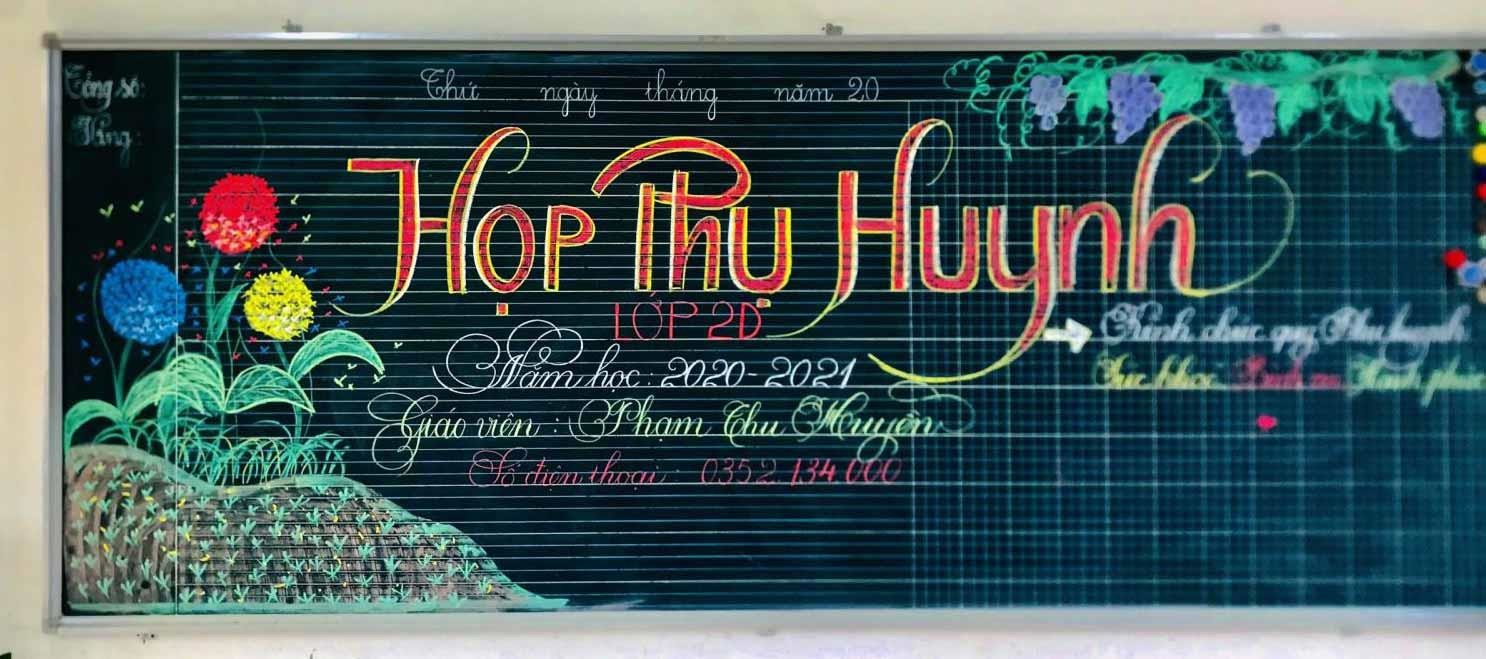 Tổng số:
Vắng:
Thứ ngày tháng năm 20
Họp Phụ Huynh
LỚP 2D
Năm học: 2020-2021
Giáo viên : Phạm Thu Huyền
Số điện thoại : 0352.134.000
Kính chúc quý Phụ huynh
Sức khỏe Bình an Hạnh phúc